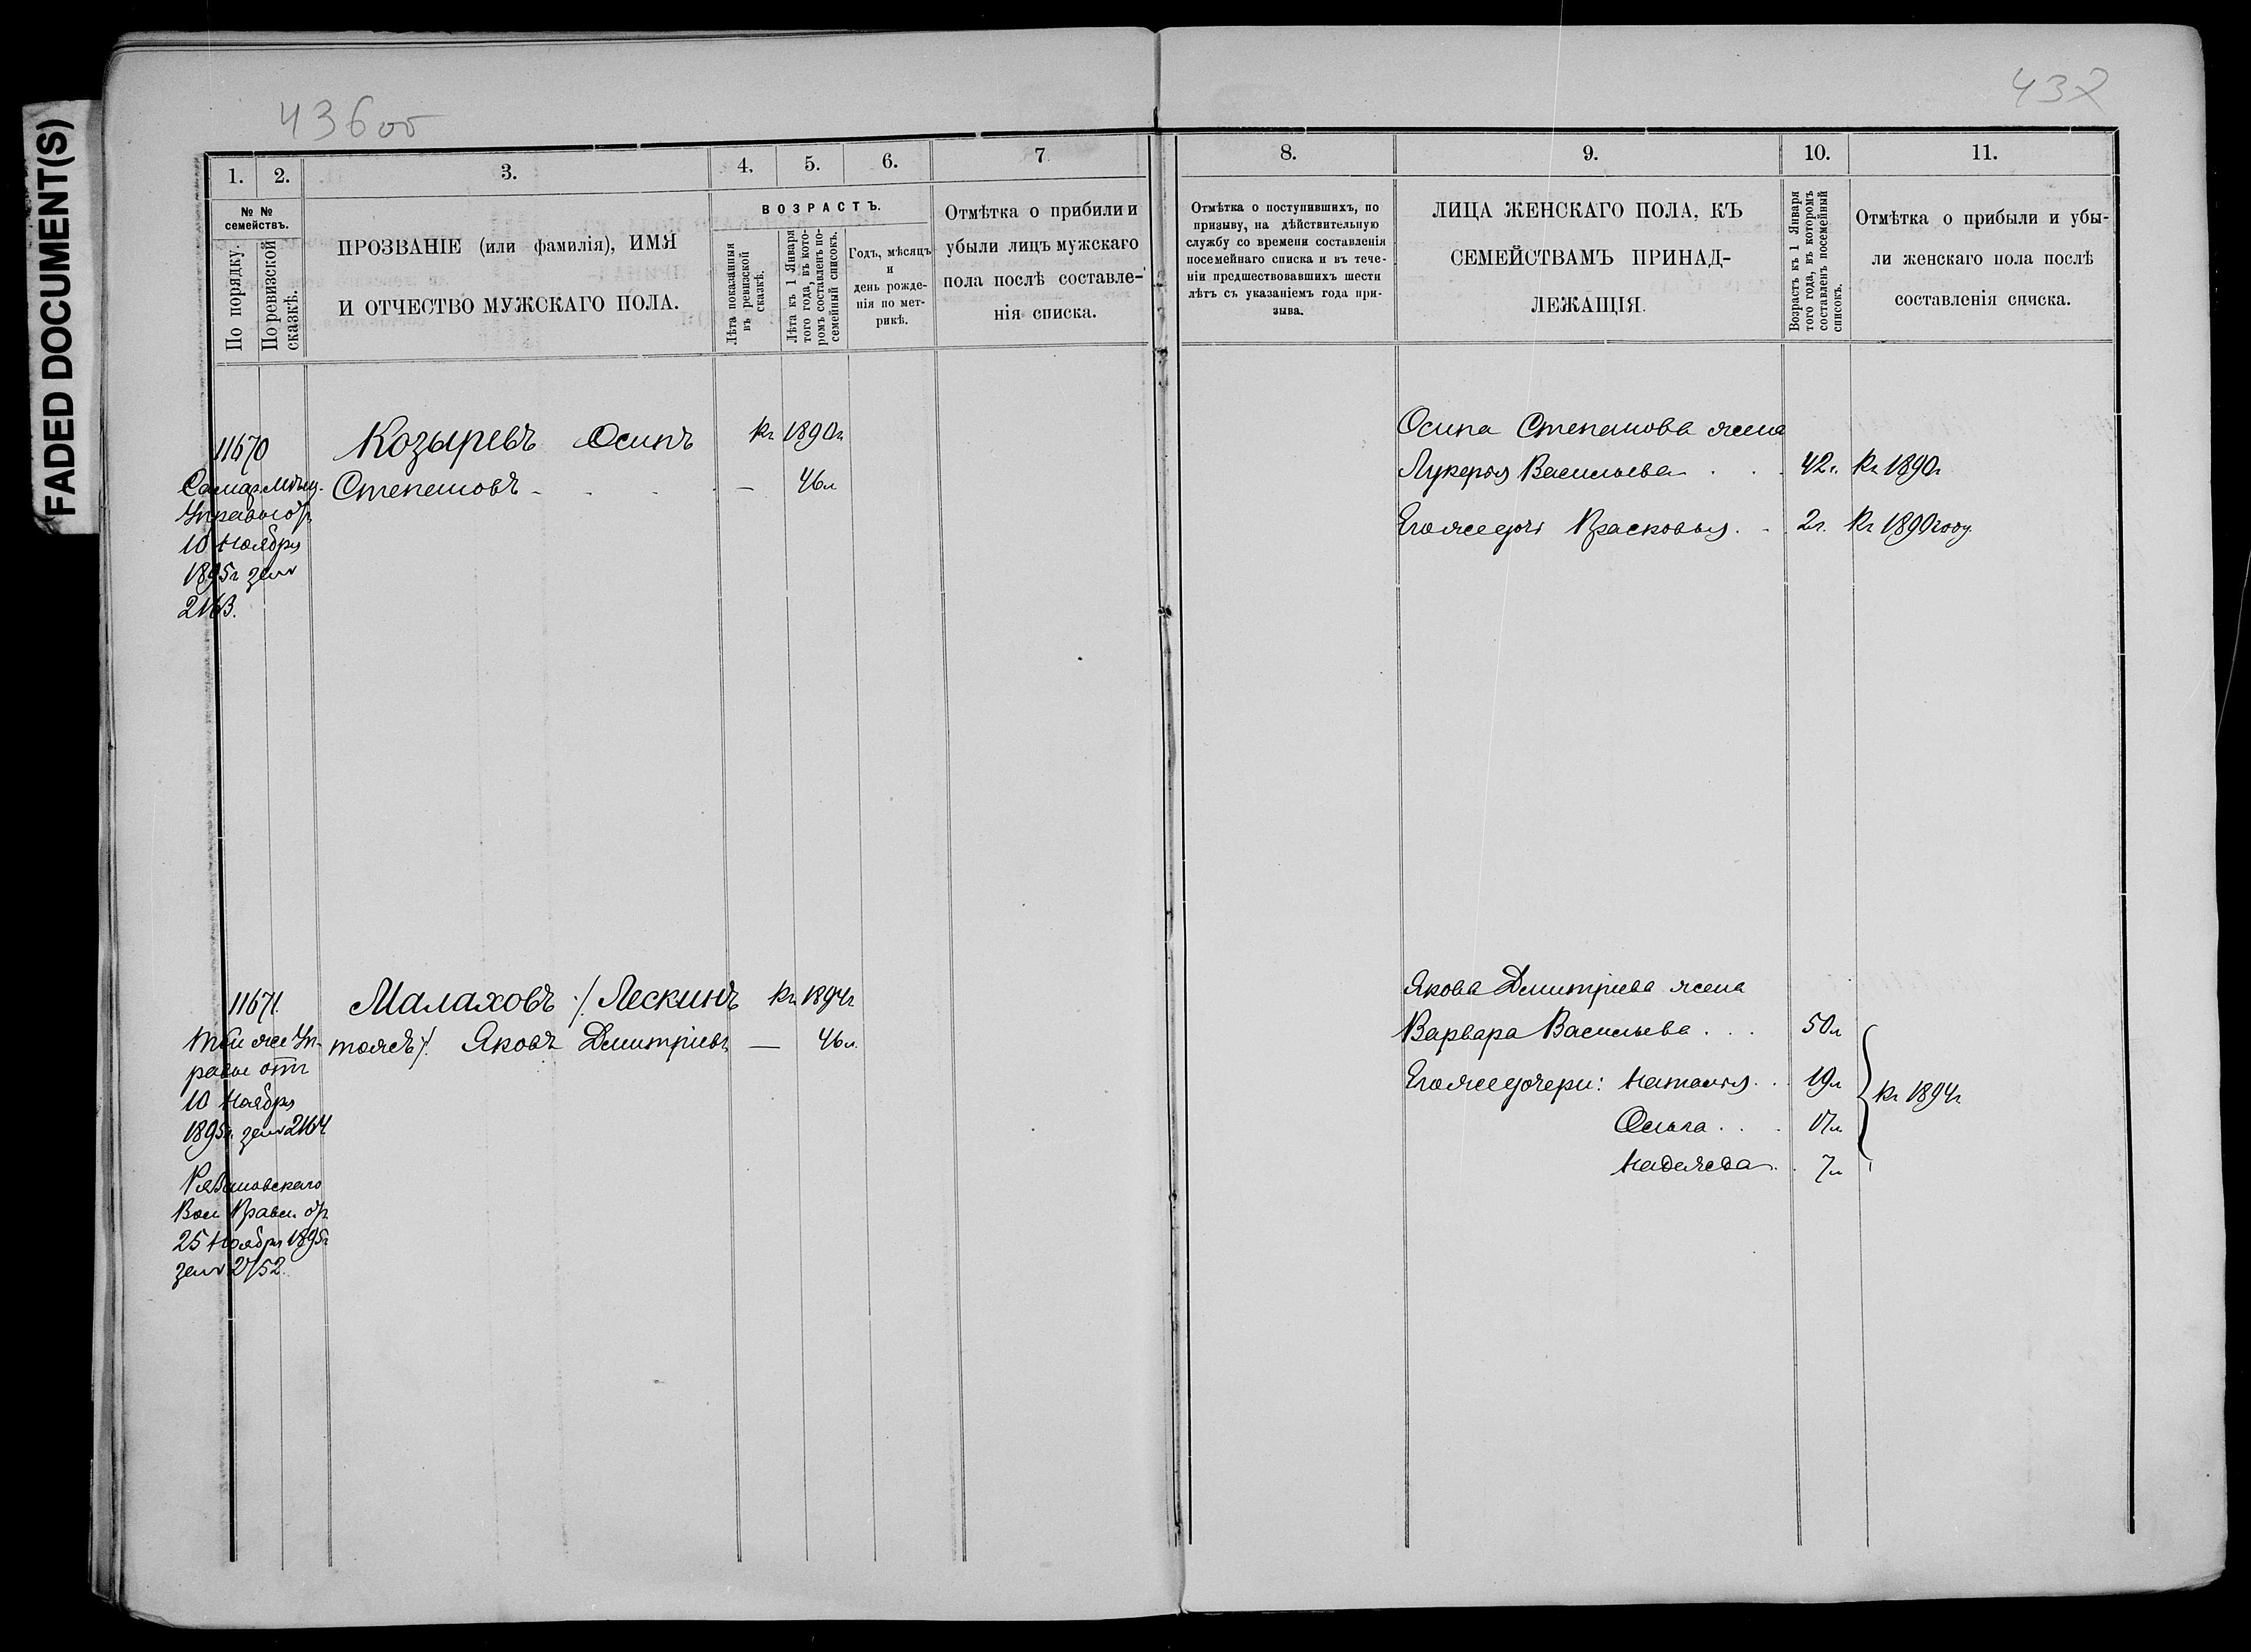 FADED DOCUMENT(S)
436об
437
1.
2.
3.
4.
5.
6.
7
8.
9.
10.
11.
№ №
семействъ.
По порядку.
По ревизской
сказкѣ.
ПРОЗВАНІЕ (или фамилія), ИМЯ
И ОТЧЕСТВО МУЖСКАГО ПОЛА.
ВОЗРАСТЪ.
Лѣта показанныя
въ ревизской
сказкѣ.
Лѣта къ 1 Января
того года, въ кото-
ромъ составленъ по-
семейный списокъ.
Годъ, мѣсяцъ
и
день рожде-
нія по мет-
рикѣ.
Отмѣтка о прибили и
убыли лицъ мужскаго
пола послѣ составле-
нія списка.
Отмѣтка о поступившихъ, по
призыву, на дѣйствительную
службу со времени составленія
посемейнаго списка и въ тече-
ніи предшествовавшихъ шести
лѣтъ съ указаніемъ года при-
зыва.
ЛИЦА ЖЕНСКАГО ПОЛА, КЪ
СЕМЕЙСТВАМЪ ПРИНАД-
ЛЕЖАЩІЯ.
Возрастъ къ 1 Января
того года, въ которомъ
составленъ посемейный
списокъ.
Отмѣтка о прибыли и убы-
ли женскаго пола послѣ
составленія списка.
11670
Самар. Мѣщ.
Управы от
10 Ноября
1895г за №
2163.
Козыревъ Осипъ
Степановъ - - - — 46л
къ 1890г.
Осипа Степанова жена
Лукерья Васильева . . . 42г. къ 1890г
Его же дочь Прасковья . . 2г. къ 1890 году.
11671.
той же Уп-
равы отъ
10 Ноября
1895г. за № 2164
Вол. Правл. от
25 Ноября 1895г
за № 2752.
Малаховъ /: Лескинъ къ 1894г
тожъ :/. Яковъ Дмитріевъ — 46л.
Якова Дмитріева жена
Варвара Васильева . . . 50л
Его же дочери: Наталья . . 19л
къ 1894г
Ольга . . . 17л
Надежда . . 7л